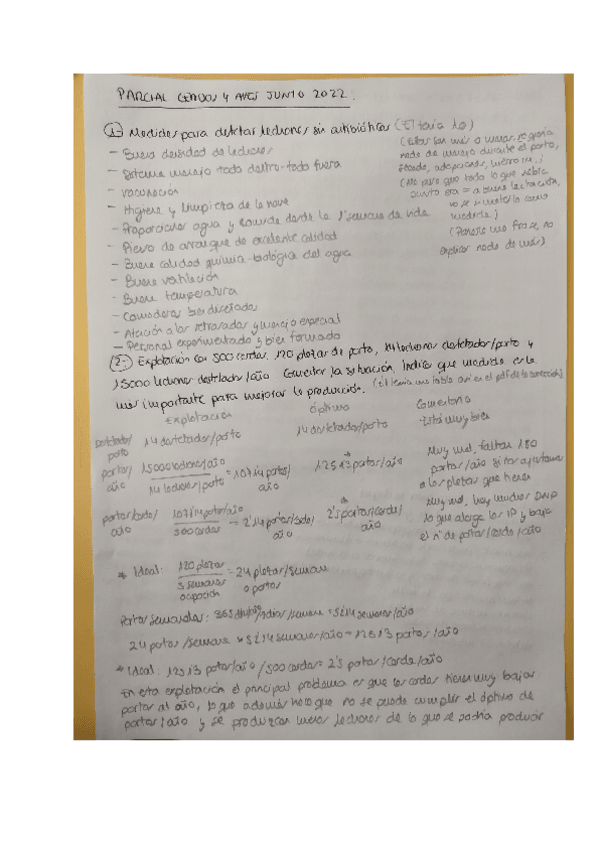 PARCIAL CERDOS Y AVES JUNIO 2022.
1- Medidas para destetar lechones sin antibióticos (El tenía 16)
- Buena densidad de lechones
- Sistema manejo todo dentro-todo fuera
- vacunación
- Higiene y limpieza de la nave
- Proporcionar agua y comida desde la 1ª semana de vida
- Pienso de arranque de excelente calidad
- Buena calidad química-biológica del agua
- Buena ventilación
- Buena temperatura
- Comederos bien diseñados
- Atención a los retrasados y manejo especial
- Personal experimentado y bien formado
(Estas son más o menos, no ponía
nada de manejo durante el parto,
(No puso que todo lo que
no se
medida.)
(Ponerle una frase, no
explicar nada de más)
2- Explotación con 500 cerdas, 120 plazas de parto, 14 lechones destetados/parto y
15000 lechones destetados/año. Comentar la situación. Indica que medida es la
más importante para mejorar la producción. (Él tenía una tabla así en el pdf de la corrección)
Explotación Óptimo Comentario
destetados/parto 14 destetados/parto 14 destetados/parto Está muy bien
partos/año 15000 lechones/año / 14 lechones/parto = 1071'4 partos/año 1251'3 partos/año Muy mal, faltan 180
partos/año si nos ajustamos
a las plazas que tienes
partos/cerda/año 1071'4 partos/año / 500 cerdas = 2'14 partos/cerda/año 2'5 partos/cerda/año Muy mal, hay muchos DNP
lo que alarga los IP y baja
el nº de partos/cerda/año
* Ideal: 120 plazas / 5 semanas ocupación = 24 plazas/semana o partos
Partos semanales: 365 días/año / 7 días/semana = 52'14 semanas/año
24 partos/semana * 52'14 semanas/año = 1251'3 partos/año
* Ideal: 1251'3 partos/año / 500 cerdas = 2'5 partos/cerda/año
En esta explotación el principal problema es que las cerdas tienen muy bajos
partos al año, lo que además hace que no se pueda cumplir el óptimo de
partos/año y se produzcan menos lechones de lo que se podría producir